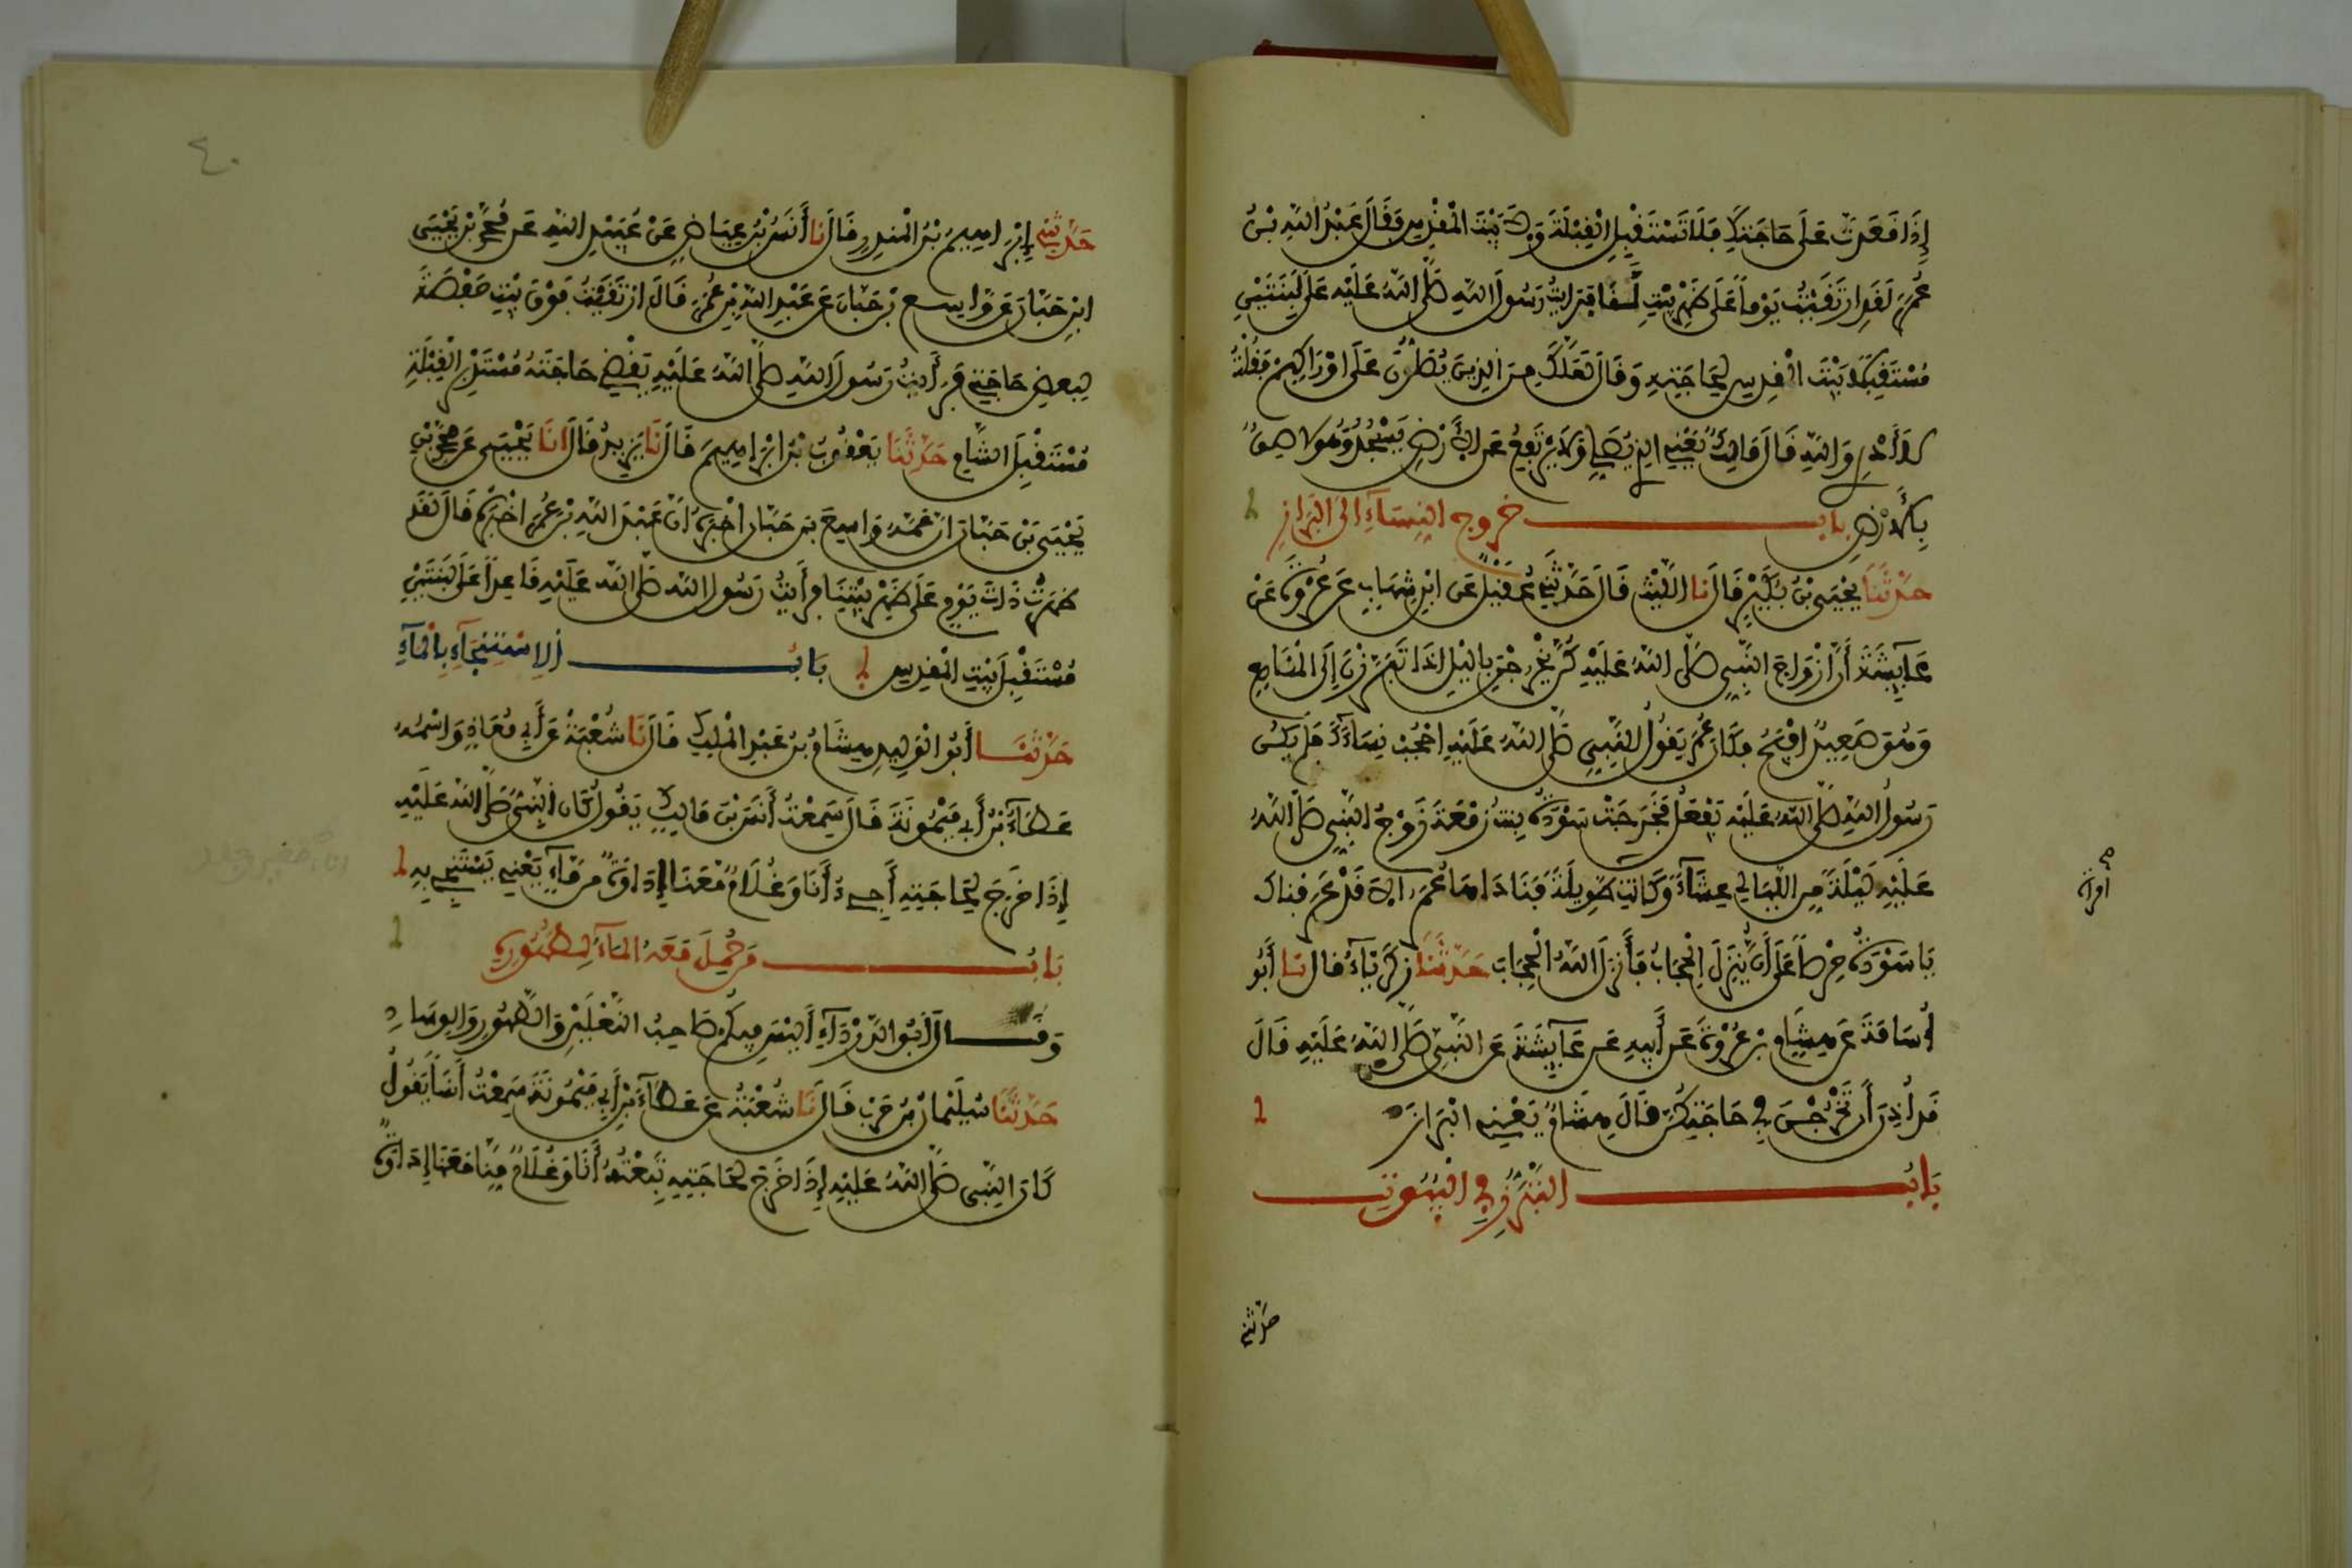 إِذَا قَعَدْتَّ عَلَى حَاجَتِكَ فَلَا تَسْتَقْبِلِ الْقِبْلَةَ وَلَا بَيْتَ الْمَقْدِسِ وَقَالَ عَبْدُ اللَّهِ بْنُ
عُمَرَ لَقَدِ ارْتَقَيْتُ يَوْماً عَلَى ظَهْرِ بَيْتٍ لَّنَا فَرَأَيْتُ رَسُولَ اللَّهِ صَلَّى اللَّهُ عَلَيْهِ عَلَى لَبِنَتَيْنِ
مُسْتَقْبِلاً بَيْتَ الْمَقْدِسِ لِحَاجَتِهِ وَقَالَ لَعَلَّكَ مِنَ الَّذِينَ يُصَلُّونَ عَلَى أَوْرَاكِهِمْ فَقُلْتُ
لَا أَدْرِي وَاللَّهِ قَالَ مَالِكٌ يَعْنِي الَّذِي يُصَلِّي وَلَا يَرْتَفِعُ عَنِ الْأَرْضِ يَسْجُدُ وَهُوَ لَاصِقٌ
بِالْأَرْضِ بَابُ خُرُوجِ النِّسَاءِ إِلَى الْبَرَازِ
حَدَّثَنَا يَحْيَى بْنُ بُكَيْرٍ قَالَ نَا اللَّيْثُ قَالَ حَدَّثَنِي عُقَيْلٌ عَنِ ابْنِ شِهَابٍ عَنْ عُرْوَةَ عَنْ
عَائِشَةَ أَنَّ أَزْوَاجَ النَّبِيِّ صَلَّى اللَّهُ عَلَيْهِ كُنَّ يَخْرُجْنَ بِاللَّيْلِ إِذَا تَبَرَّزْنَ إِلَى الْمَنَاصِعِ
وَهُوَ صَعِيدٌ أَفْيَحُ فَكَانَ عُمَرُ يَقُولُ لِلنَّبِيِّ صَلَّى اللَّهُ عَلَيْهِ احْجُبْ نِسَاءَكَ فَلَمْ يَكُنْ
رَسُولُ اللَّهِ صَلَّى اللَّهُ عَلَيْهِ يَفْعَلُ فَخَرَجَتْ سَوْدَةُ بِنْتُ زَمْعَةَ زَوْجُ النَّبِيِّ صَلَّى اللَّهُ
عَلَيْهِ لَيْلَةً مِنَ اللَّيَالِي عِشَاءً وَكَانَتِ طَوِيلَةً فَنَادَاهَا عُمَرُ أَلَا قَدْ عَرَفْنَاكِ
امرأة
يَا سَوْدَةُ حِرْصاً عَلَى أَنْ يُنْزَلَ الْحِجَابُ فَأَنْزَلَ اللَّهُ الْحِجَابَ حَدَّثَنَا زَكَرِيَّاءُ قال نَا أَبُو
أُسَامَةَ عَنْ هِشَامِ بْنِ عُرْوَةَ عَنْ أَبِيهِ عَنْ عَائِشَةَ عَنِ النَّبِيِّ صَلَّى اللَّهُ عَلَيْهِ قَالَ
قَدْ أُذِنَ أَنْ تَخْرُجْنَ فِي حَاجَتِكُنَّ قَالَ هِشَامٌ يَعْنِي الْبَرَازَ
بَابُ التَّبَرُّزِ فِي الْبُيُوتِ
حدثني
٤٠
حَدَّثَنِي إِبْرَاهِيمُ بْنُ الْمُنْذِرِ قَالَ نَا أَنَسُ بْنُ عِيَاضٍ عَنْ عُبَيْدِ اللَّهِ عَنْ مُحَمَّدِ بْنِ يَحْيَى
ابْنِ حَبَّانَ عَنْ وَاسِعِ بْنِ حَبَّانَ عَنْ عَبْدِ اللَّهِ بْنِ عُمَرَ قَالَ ارْتَقَيْتُ فَوْقَ بَيْتِ حَفْصَةَ
لِبَعْضِ حَاجَتِي فَرَأَيْتُ رَسُولَ اللَّهِ صَلَّى اللَّهُ عَلَيْهِ يَقْضِي حَاجَتَهُ مُسْتَدْبِرَ الْقِبْلَةِ
مُسْتَقْبِلَ الشَّامِ حَدَّثَنَا يَعْقُوبُ بْنُ إِبْرَاهِيمَ قَالَ نَا يَزِيدُ قَالَ انَا يَحْيَى عَنْ مُحَمَّدِ بْنِ
يَحْيَى بْنِ حَبَّانَ أَنَّ عَمَّهُ وَاسِعَ بْنَ حَبَّانَ أَخْبَرَهُ أَنَّ عَبْدَ اللَّهِ بْنَ عُمَرَ أَخْبَرَهُ قَالَ لَقَدْ
ظَهَرْتُ ذَاتَ يَوْمٍ عَلَى ظَهْرِ بَيْتِنَا فَرَأَيْتُ رَسُولَ اللَّهِ صَلَّى اللَّهُ عَلَيْهِ قَاعِداً عَلَى لَبِنَتَيْنِ
مُسْتَقْبِلَ بَيْتِ الْمَقْدِسِ بَابُ الِاسْتِنْجَاءِ بِالْمَاءِ
حَدَّثَنَا أَبُو الْوَلِيدِ هِشَامُ بْنُ عَبْدِ الْمَلِكِ قَالَ نَا شُعْبَةُ عَنْ أَبِي مُعَاذٍ وَاسْمُهُ
عَطَاءُ بْنُ أَبِي مَيْمُونَةَ قَالَ سَمِعْتُ أَنَسَ بْنَ مَالِكٍ يَقُولُ كَانَ النَّبِيُّ صَلَّى اللَّهُ عَلَيْهِ
إِذَا خَرَجَ لِحَاجَتِهِ أَجِيءُ أَنَا وَغُلَامٌ مَّعَنَا إِدَاوَةٌ مِّن مَّاءٍ يَعْنِي يَسْتَنْجِي بِهِ
بَابُ مَنْ حُمِلَ مَعَهُ الْمَاءُ لِطُهُورِهِ
وَقَالَ أَبُو الدَّرْدَاءِ أَلَيْسَ فِيكُمْ صَاحِبُ النَّعْلَيْنِ وَالطَّهُورِ وَالْوِسَادِ
حَدَّثَنَا سُلَيْمَانُ بْنُ حَرْبٍ قَالَ نَا شُعْبَةُ عَنْ عَطَاءِ بْنِ أَبِي مَيْمُونَةَ سَمِعْتُ أَنَساً يَقُولُ
كَانَ النَّبِيُّ صَلَّى اللَّهُ عَلَيْهِ إِذَا خَرَجَ لِحَاجَتِهِ تَبِعْتُهُ أَنَا وَغُلَامٌ مِّنَّا مَعَنَا إِدَاوَةٌ